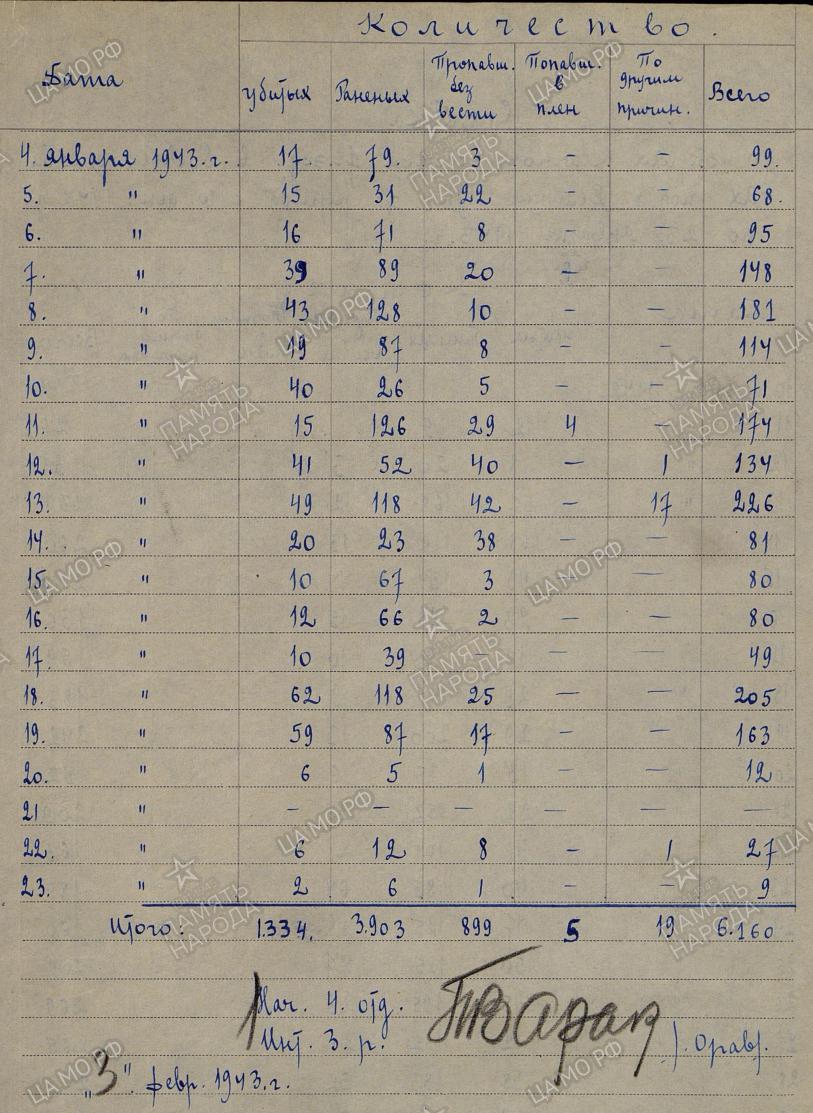 Количество.
Дата убитых Раненых Пропавш. без вести Попавш. в плен По другим причин. Всего
4. января 1943.г. 17. 79. 3 — — 99.
5. " 15 31 22 — — 68.
6. " 16 71 8 — — 95
7. " 39 89 20 — — 148
8. " 43 128 10 — — 181
9. " 19 87 8 — — 114
10. " 40 26 5 — — 71
11. " 15 126 29 4 — 174
12. " 41 52 40 — 1 134
13. " 49 118 42 — 17 226
14. " 20 23 38 — — 81
15. " 10 67 3 — — 80
16. " 12 66 2 — — 80
17. " 10 39 — — — 49
18. " 62 118 25 — — 205
19. " 59 87 17 — — 163
20. " 6 5 1 — — 12
21 " — — — — — —
22. " 6 12 8 — 1 27
23. " 2 6 1 — — 9
Итого: 1.334. 3.903 899 5 19 6.160
Нач. 4. отд.
Инт. 3. р.
"3". февр. 1943.г.
ЦАМО.РФ
ПАМЯТЬ НАРОДА